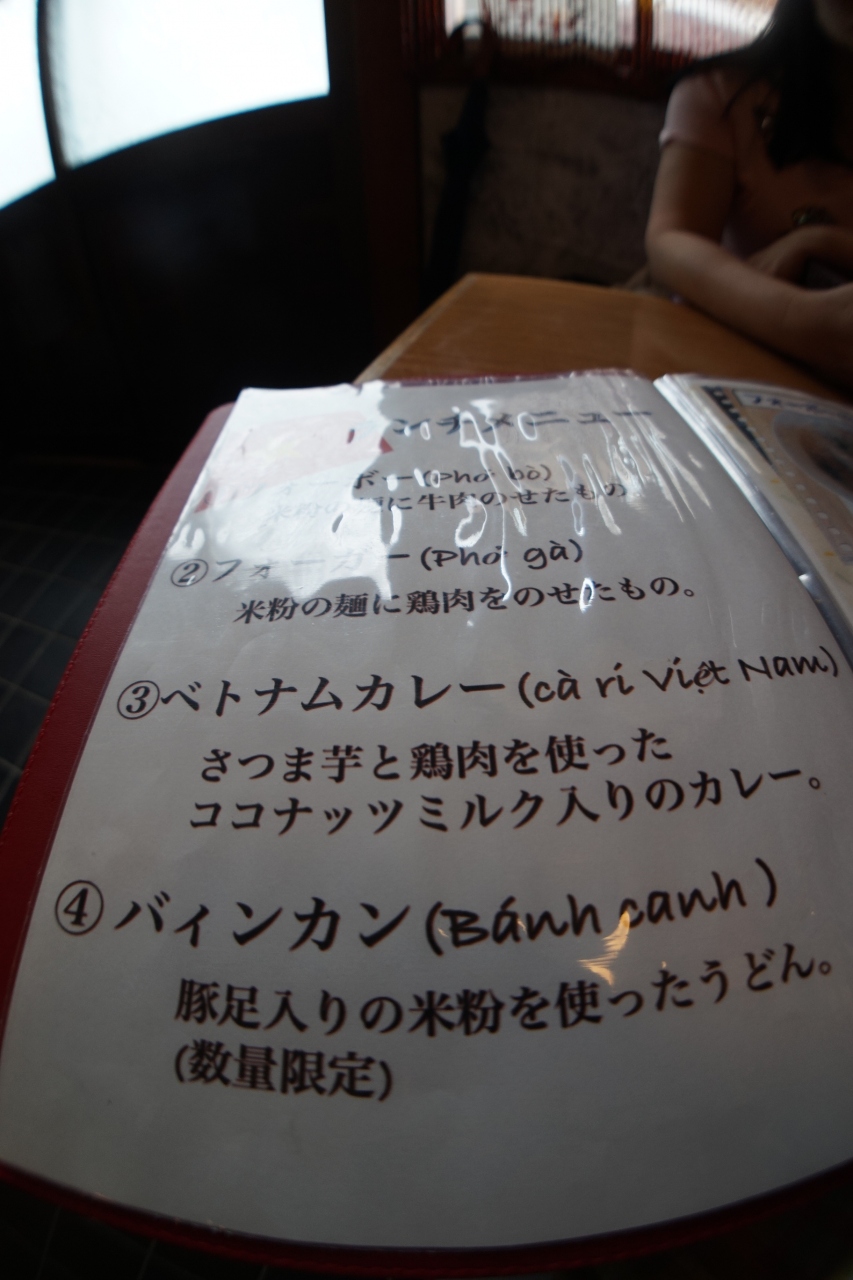 ンチメニュー
ボー(Phở bò)
麺に牛肉のせたもの
②フォーガー(Phở gà)
米粉の麺に鶏肉をのせたもの。
③ベトナムカレー(cà ri Việt Nam)
さつま芋と鶏肉を使った
ココナッツミルク入りのカレー。
④バィンカン(Bánh canh)
豚足入りの米粉を使ったうどん。
(数量限定)